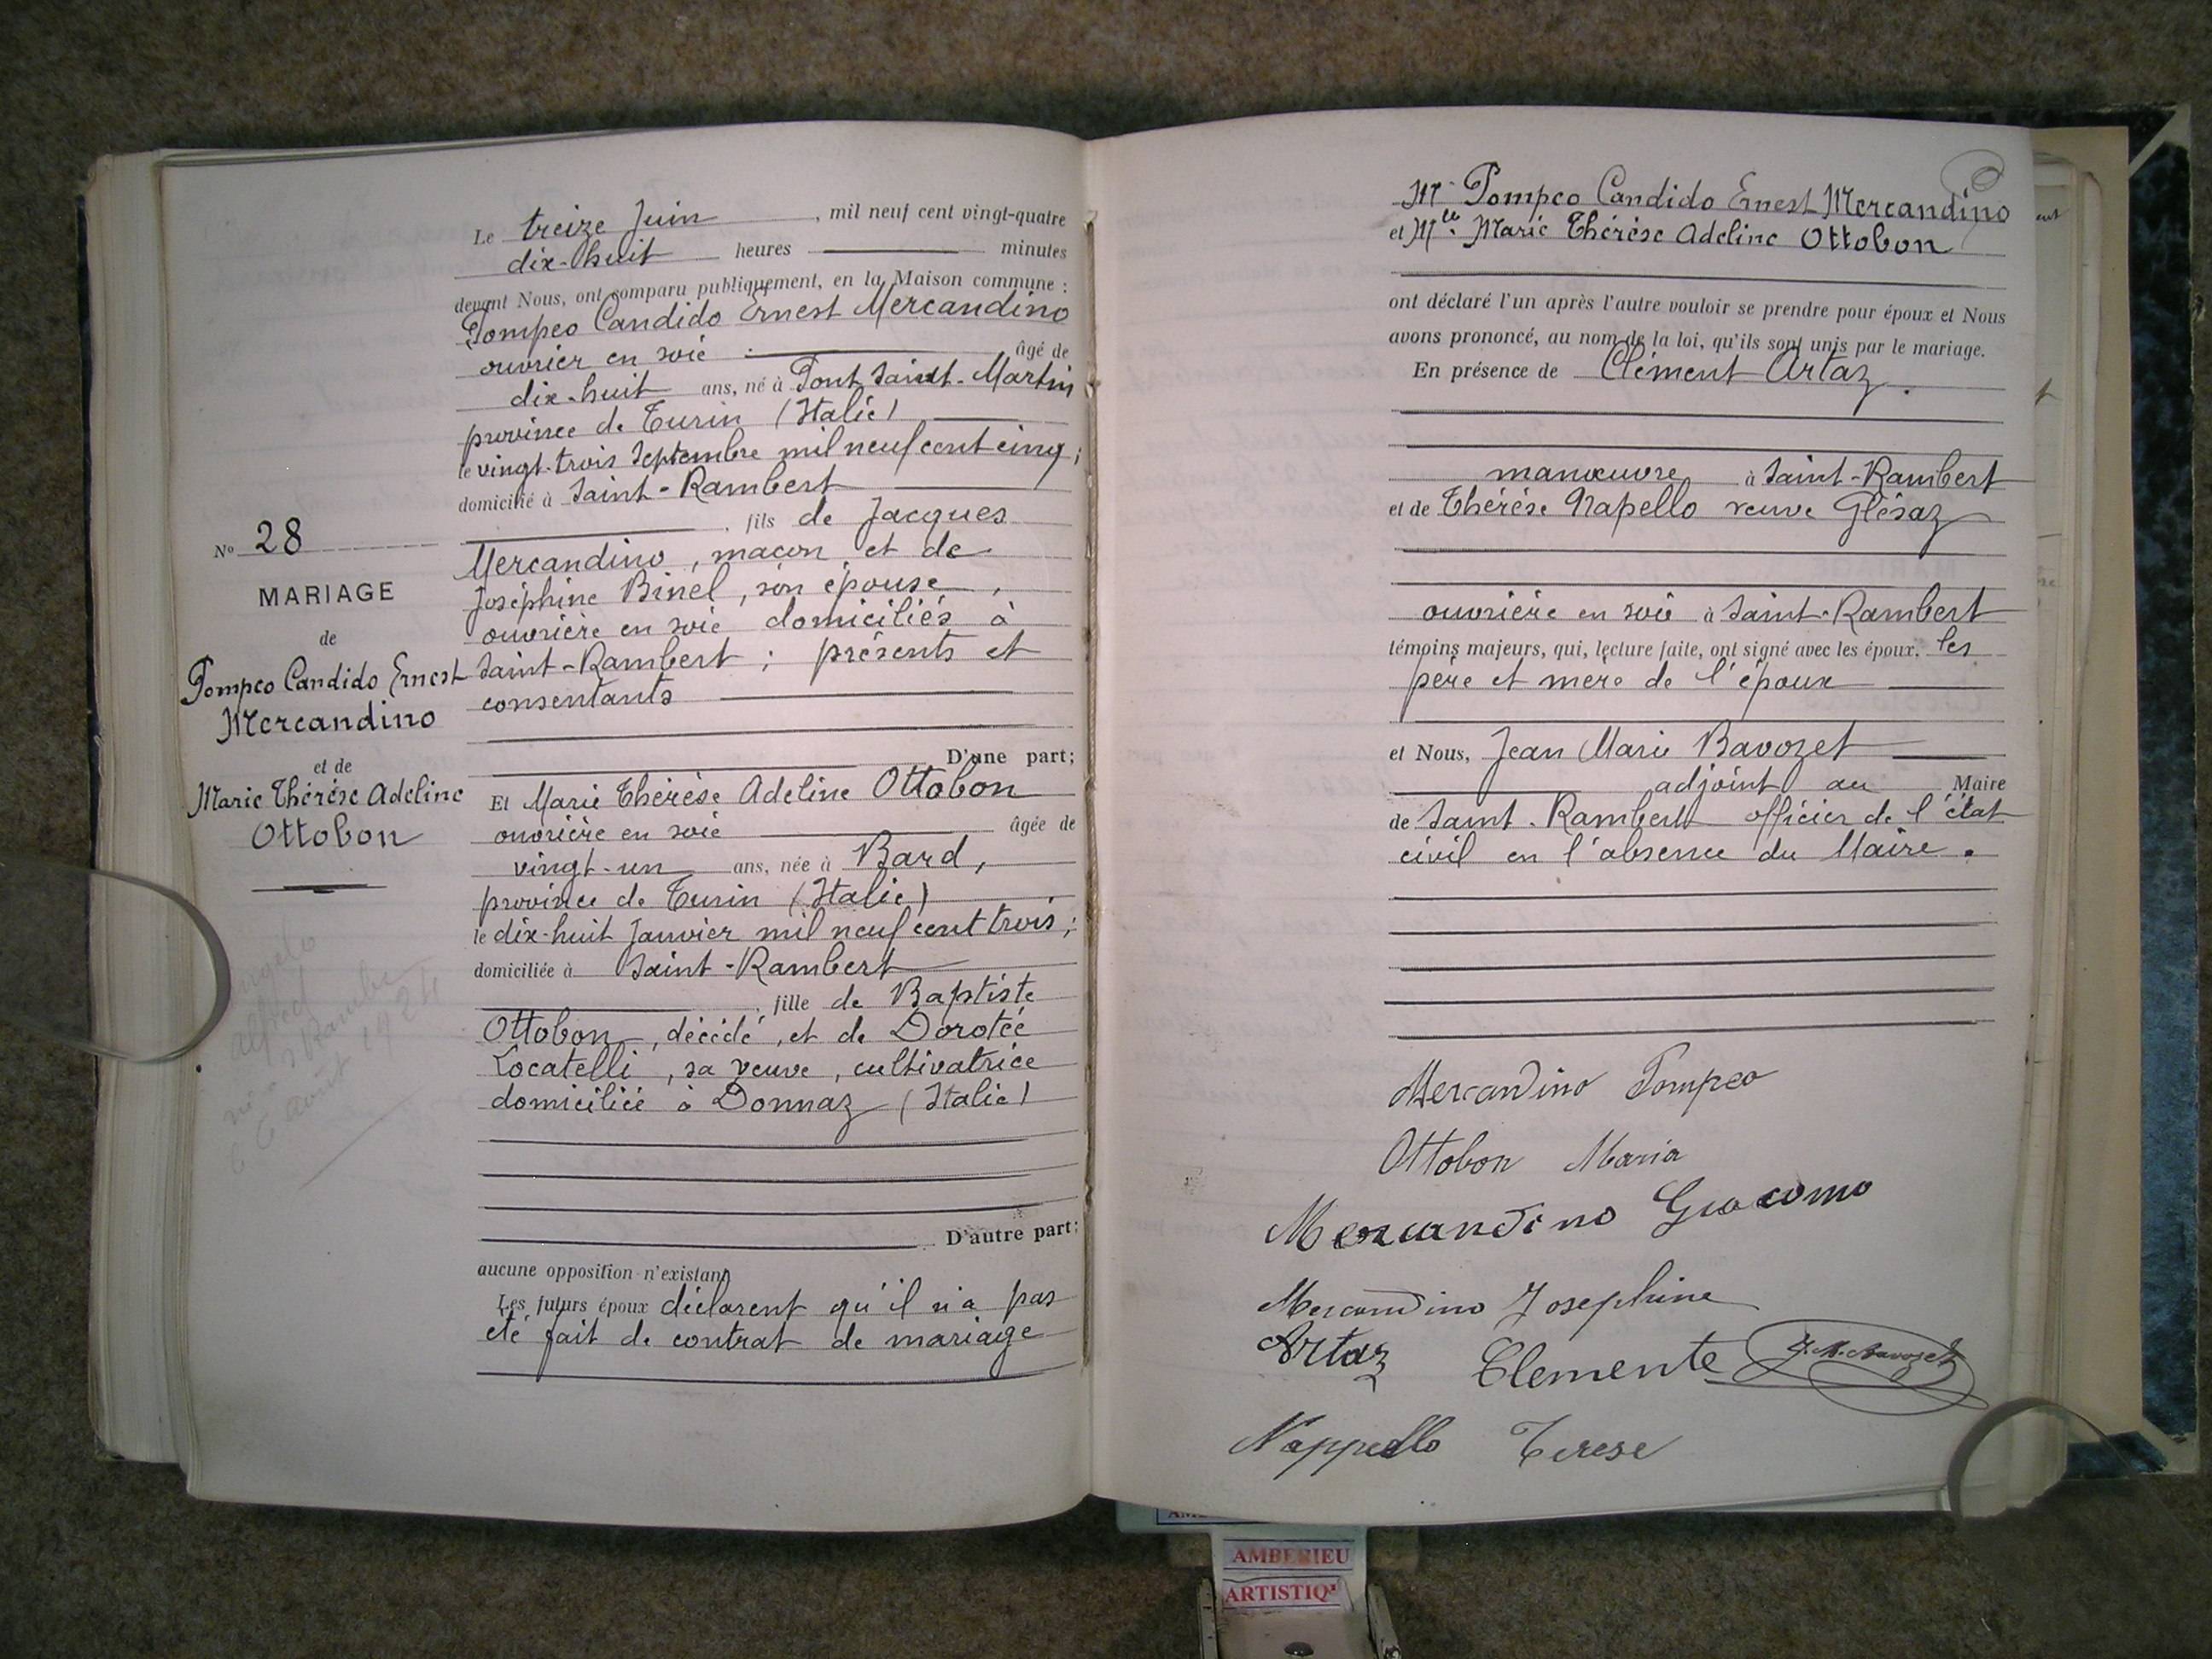 Le treize Juin, mil neuf cent vingt-quatre
dix-huit heures minutes
devant Nous, ont comparu publiquement, en la Maison commune :
Pompeo Candido Ernest Mercandino
ouvrier en soie âgé de
dix-huit ans, né à Pont Saint-Martin
province de Turin (Italie)
le vingt-trois Septembre mil neuf cent cinq;
domicilié à Saint-Rambert
, fils de Jacques
Mercandino, maçon, et de
Joséphine Binel, son épouse,
ouvrière en soie domiciliés à
Saint-Rambert; présents et
consentants
D'une part;
Nº 28
MARIAGE
de
Pompeo Candido Ernest
Mercandino
et de
Marie Thérèse Adeline
Ottobon
Et Marie Thérèse Adeline Ottobon
ouvrière en soie âgée de
vingt-un ans, née à Bard,
province de Turin (Italie)
le dix-huit Janvier mil neuf cent trois;
domiciliée à Saint-Rambert
, fille de Baptiste
Ottobon, décédé, et de Dorotée
Locatelli, sa veuve, cultivatrice
domiciliée à Donnaz (Italie)
D'autre part;
aucune opposition n'existant
Les futurs époux déclarent qu'il n'a pas
été fait de contrat de mariage
Alfred
né à St Rambe
le 6 août 1924
Mr Pompeo Candido Ernest Mercandino
et Mlle Marie Thérèse Adeline Ottobon
ont déclaré l'un après l'autre vouloir se prendre pour époux et Nous
avons prononcé, au nom de la loi, qu'ils sont unis par le mariage.
En présence de Clément Artaz.
manœuvre à Saint-Rambert
et de Thérèse Napello veuve Glésaz
ouvrière en soie à Saint-Rambert
témoins majeurs, qui, lecture faite, ont signé avec les époux, les
père et mère de l'époux
et Nous, Jean Marie Bavozet
adjoint au Maire
de Saint-Rambert officier de l'état
civil en l'absence du Maire.
Mercandino Pompeo
Ottobon Maria
Mercandino Giacomo
Mercandino Josephine
Artaz Clemente J. M. Bavozet
Nappello Terese
AMBERIEU
ARTISTIQ